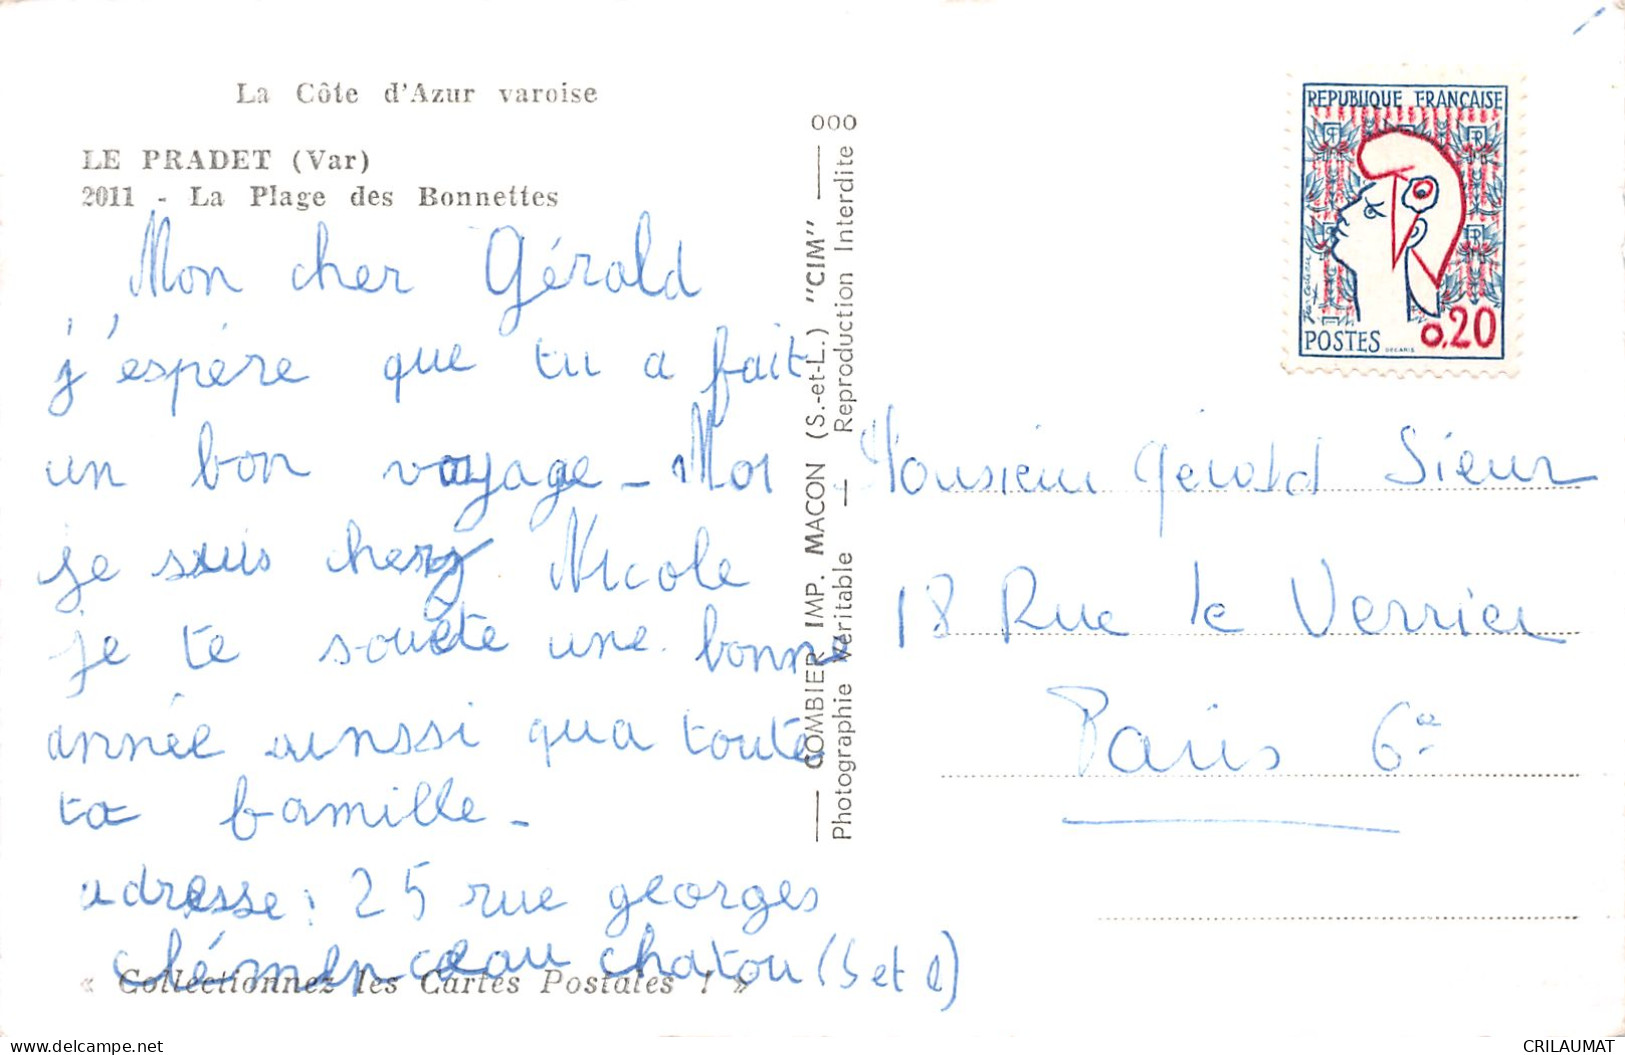 La Côte d'Azur varoise
LE PRADET (Var)
2011 - La Plage des Bonnettes
Mon cher Gérald
j'espére que tu a fait
un bon voyage - Moi
je suis cherz Nicole
je te souète une bonne
année ainssi qua toute
ta famille -
adresse : 25 rue georges
chémenceau chatou (S et O)
« Collectionnez les Cartes Postales ! »
000
COMBIER IMP. MACON (S.-et-L.) "CIM"
Photographie Véritable — Reproduction Interdite
REPUBLIQUE FRANÇAISE
POSTES
0,20
DECARIS
Monsieur Gérald Sieur
18 Rue le Verrier
Paris 6e
delcampe.net
CRILAUMAT